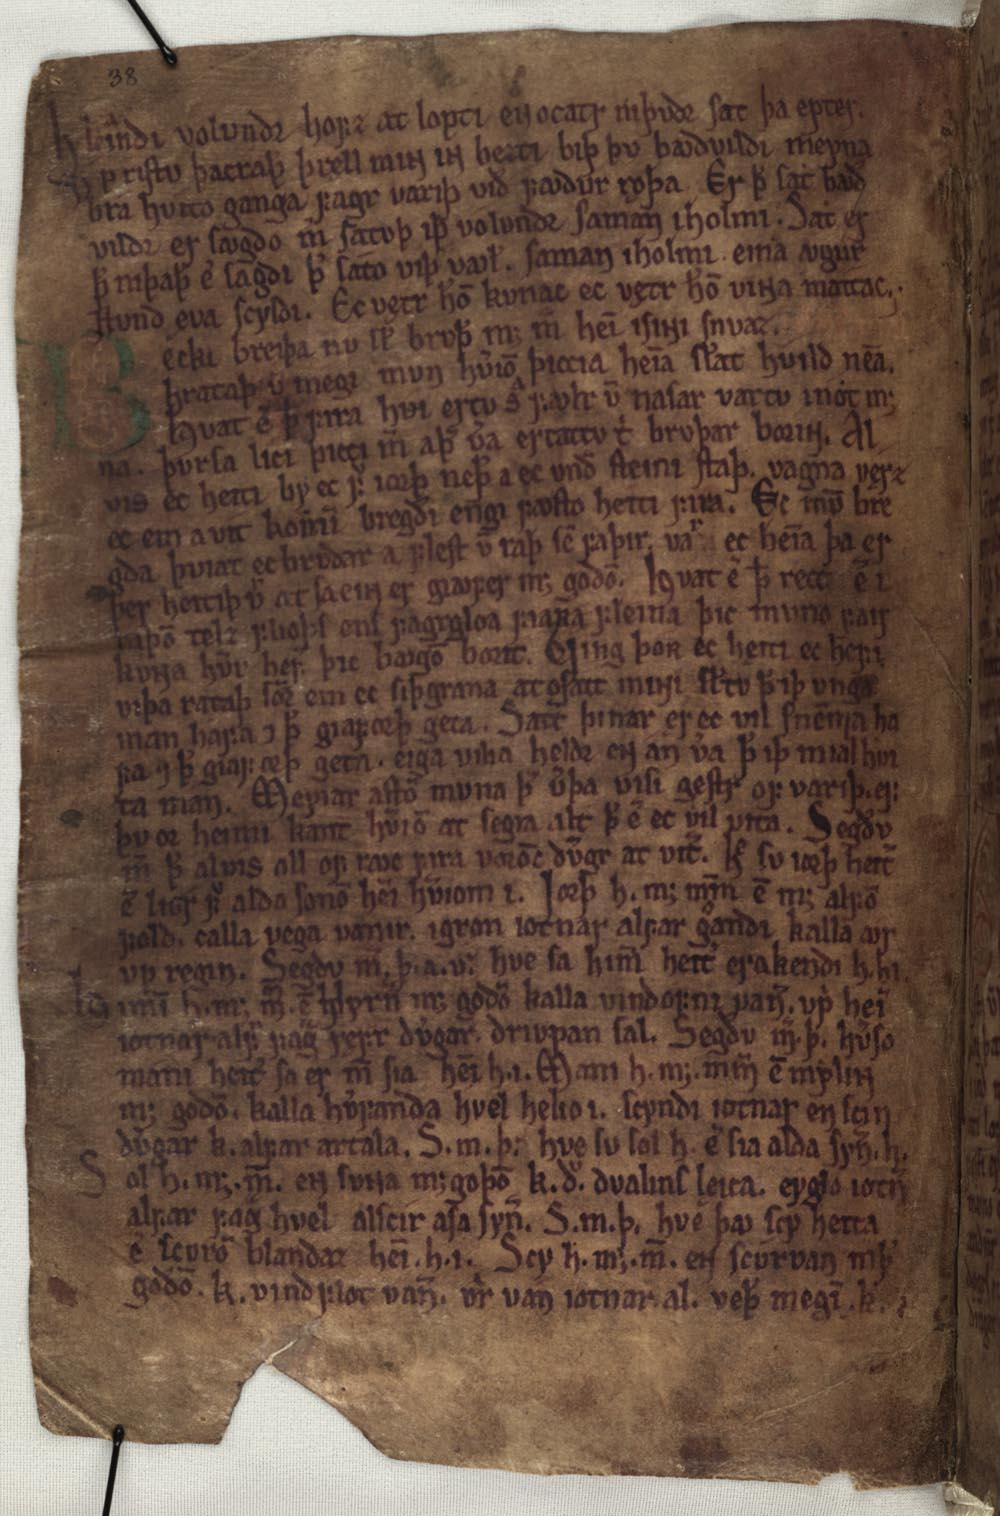 38
hlęiandi volundr hofz at lopti en ocatr niþvðr sat þa eptir.
Up ristv þaccraþ þrell min in bezti biþ þv baðvildi meyna
bra hvito ganga fagr variþ viþ fꜹdur rǫþa. Er þ̄ satt bꜹd
vildr er sꜹgdo m̄ satoþ iþ volundr saman iholmi. Satt er
þ̄ niþaþ ē̓ sagdi þ̓ sáto viþ vꜹl̓. saman iholmi eina ꜹgur
stund ęva scyldi. Ec vętr h̄o kunac ec vętr h̄o vina mattac.
Becki breiþa nv sl̄ brvþ m; m̄ hei̅ isinni snvaz.
hrataþ v̄ męgi mvn hv̓io̅ þiccia hei̅a scl̓at hvild nęa̅.
Hvat ē þ̄ fira hvi ertv s̓ fꜹlr v̄ nasar vartv inǫ́t m;
na. þvrsa lici þicci m̄ aþ̓ v̓a ertattv t̓ brvþar borin. Al
vis ec heiti by ec f̓ iorþ neþ̓ a ec vnd̓ steini staþ. vagna vers
ec em a vit komi̅n bregdi engi fꜹsto heiti fira. Ec mv̅ bre
gda þviat ec brvdar a flest v̄ raþ se̅ faþir. varca ec hei̅a þa er
þer heitiþ v̓ at sa ein er giafer m; godo̅. Hvat ē þ̄ recca ē̓ i
raþo̅ telz fliods ens fagrgloa fiarra fleina þic mvno fair
kvnna hv̓r hef̓ þic bꜹgo̅ borit. Ving þor ec heiti ec hefi
viþa rataþ so̅r em ec siþgrana at osatt mini scl̓tv þ̄ iþ vnga
man hafa ⁊ þ̄ giaforþ geta. Sattir þinar er ec vil snem̄a ha
fa ⁊ þ̄ giaf orþ geta. eiga vilia heldr en an v̓a þ̄ iþ miallhvi
ta man. Meyiar asto̅ mvna þ̓ v̓þa visi gestr of variþ. ef
þv or heimi kant hv̓io̅ at segia allt þ̄ ē̓ ec vil vita. Segdv
m̄ þ̄ alvis oll of rꜹc fira voro̅c dv̓gr at viti. hv̓ sv iorþ heiti̅
ē̓ ligr f̓ alda sono̅ hei̅i hv̓iom i. Iorþ h. m; mo̅m en̅ m; alfo̅
fold. calla vega vanir. igron iotnar alfar groandi kalla ꜹr
vp regin. Segdv m̄. þ. a. v. hve sa himi̅ heit̓ erakendi h. hi.
Himi̅ h. m; m̄. ē̓ hlyrn̅ m; godo̅ kalla vindofni van̅. vp hei̅
iotnar alf̓ fag̓ ręfr dv̓gar. drivpan sal. Segdv m̄. þ. hv̓so
mani heit̓ sa er m̄ sia hei̅i h. i. Mani h. m; mo̅m en̅ mylin
m; godo̅. kalla hv̓fanda hvel helio i. scyndi iotnar en scin
dv̓gar k. alfar artala. S. m. þ. hve sv sol h. ē̓ sia alda syn̅. h.
Sol h. m;. m̄. en svnna m; goþo̅ k. d̓. dvalins leica. eyglo iotn̅
alfar fag̓ hvel alscir asa syn̅. S. m. þ. hve þꜹ scy heita
ē̓ scvro̅ blandaz hei̅. h. i. Scy h. m;. m̄. en scvrvan m; 
godo̅. k. vindflot van̅. v̓r van iotnar. al. veþ̓ megi̅. k.